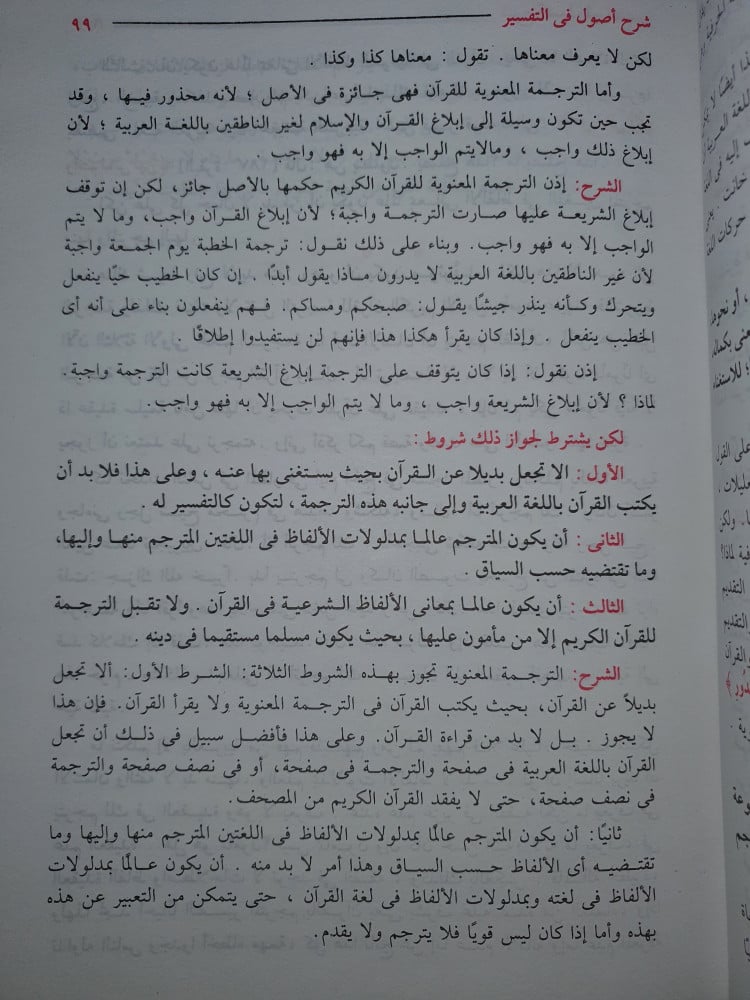 شرح أصول فى التفسير ٩٩
لكن لا يعرف معناها . تقول : معناها كذا وكذا .
وأما الترجمة المعنوية للقرآن فهى جائزة فى الأصل ؛ لأنه محذور فيها ، وقد
تجب حين تكون وسيلة إلى إبلاغ القرآن والإسلام لغير الناطقين باللغة العربية ؛ لأن
إبلاغ ذلك واجب ، ومالايتم الواجب إلا به فهو واجب .
الشرح: إذن الترجمة المعنوية للقرآن الكريم حكمها بالأصل جائز، لكن إن توقف
إبلاغ الشريعة عليها صارت الترجمة واجبة؛ لأن إبلاغ القرآن واجب، وما لا يتم
الواجب إلا به فهو واجب. وبناء على ذلك نقول: ترجمة الخطبة يوم الجمعة واجبة
لأن غير الناطقين باللغة العربية لا يدرون ماذا يقول أبدًا . إن كان الخطيب حيًا ينفعل
ويتحرك وكأنه ينذر جيشًا يقول: صبحكم ومساكم. فهم ينفعلون بناء على أنه أى
الخطيب ينفعل . وإذا كان يقرأ هكذا هذا فإنهم لن يستفيدوا إطلاقًا .
إذن نقول: إذا كان يتوقف على الترجمة إبلاغ الشريعة كانت الترجمة واجبة.
لماذا ؟ لأن إبلاغ الشريعة واجب ، وما لا يتم الواجب إلا به فهو واجب.
لكن يشترط لجواز ذلك شروط :
الأول : الا تجعل بديلا عن القرآن بحيث يستغنى بها عنه ، وعلى هذا فلا بد أن
يكتب القرآن باللغة العربية وإلى جانبه هذه الترجمة ، لتكون كالتفسير له .
الثانى : أن يكون المترجم عالما بمدلولات الألفاظ فى اللغتين المترجم منها وإليها،
وما تقتضيه حسب السياق .
الثالث : أن يكون عالما بمعانى الألفاظ الشرعية فى القرآن . ولا تقبل الترجمة
للقرآن الكريم إلا من مأمون عليها ، بحيث يكون مسلما مستقيما فى دينه .
الشرح: الترجمة المعنوية تجوز بهذه الشروط الثلاثة: الشرط الأول: ألا تجعل
بديلاً عن القرآن، بحيث يكتب القرآن فى الترجمة المعنوية ولا يقرأ القرآن. فإن هذا
لا يجوز . بل لا بد من قراءة القرآن. وعلى هذا فأفضل سبيل فى ذلك أن تجعل
القرآن باللغة العربية فى صفحة والترجمة فى صفحة، أو فى نصف صفحة والترجمة
فى نصف صفحة، حتى لا يفقد القرآن الكريم من المصحف.
ثانيًا: أن يكون المترجم عالمًا بمدلولات الألفاظ فى اللغتين المترجم منها وإليها وما
تقتضيه أى الألفاظ حسب السياق وهذا أمر لا بد منه . أن يكون عالمًا بمدلولات
الألفاظ فى لغته وبمدلولات الألفاظ فى لغة القرآن ، حتى يتمكن من التعبير عن هذه
بهذه وأما إذا كان ليس قويًا فلا يترجم ولا يقدم.